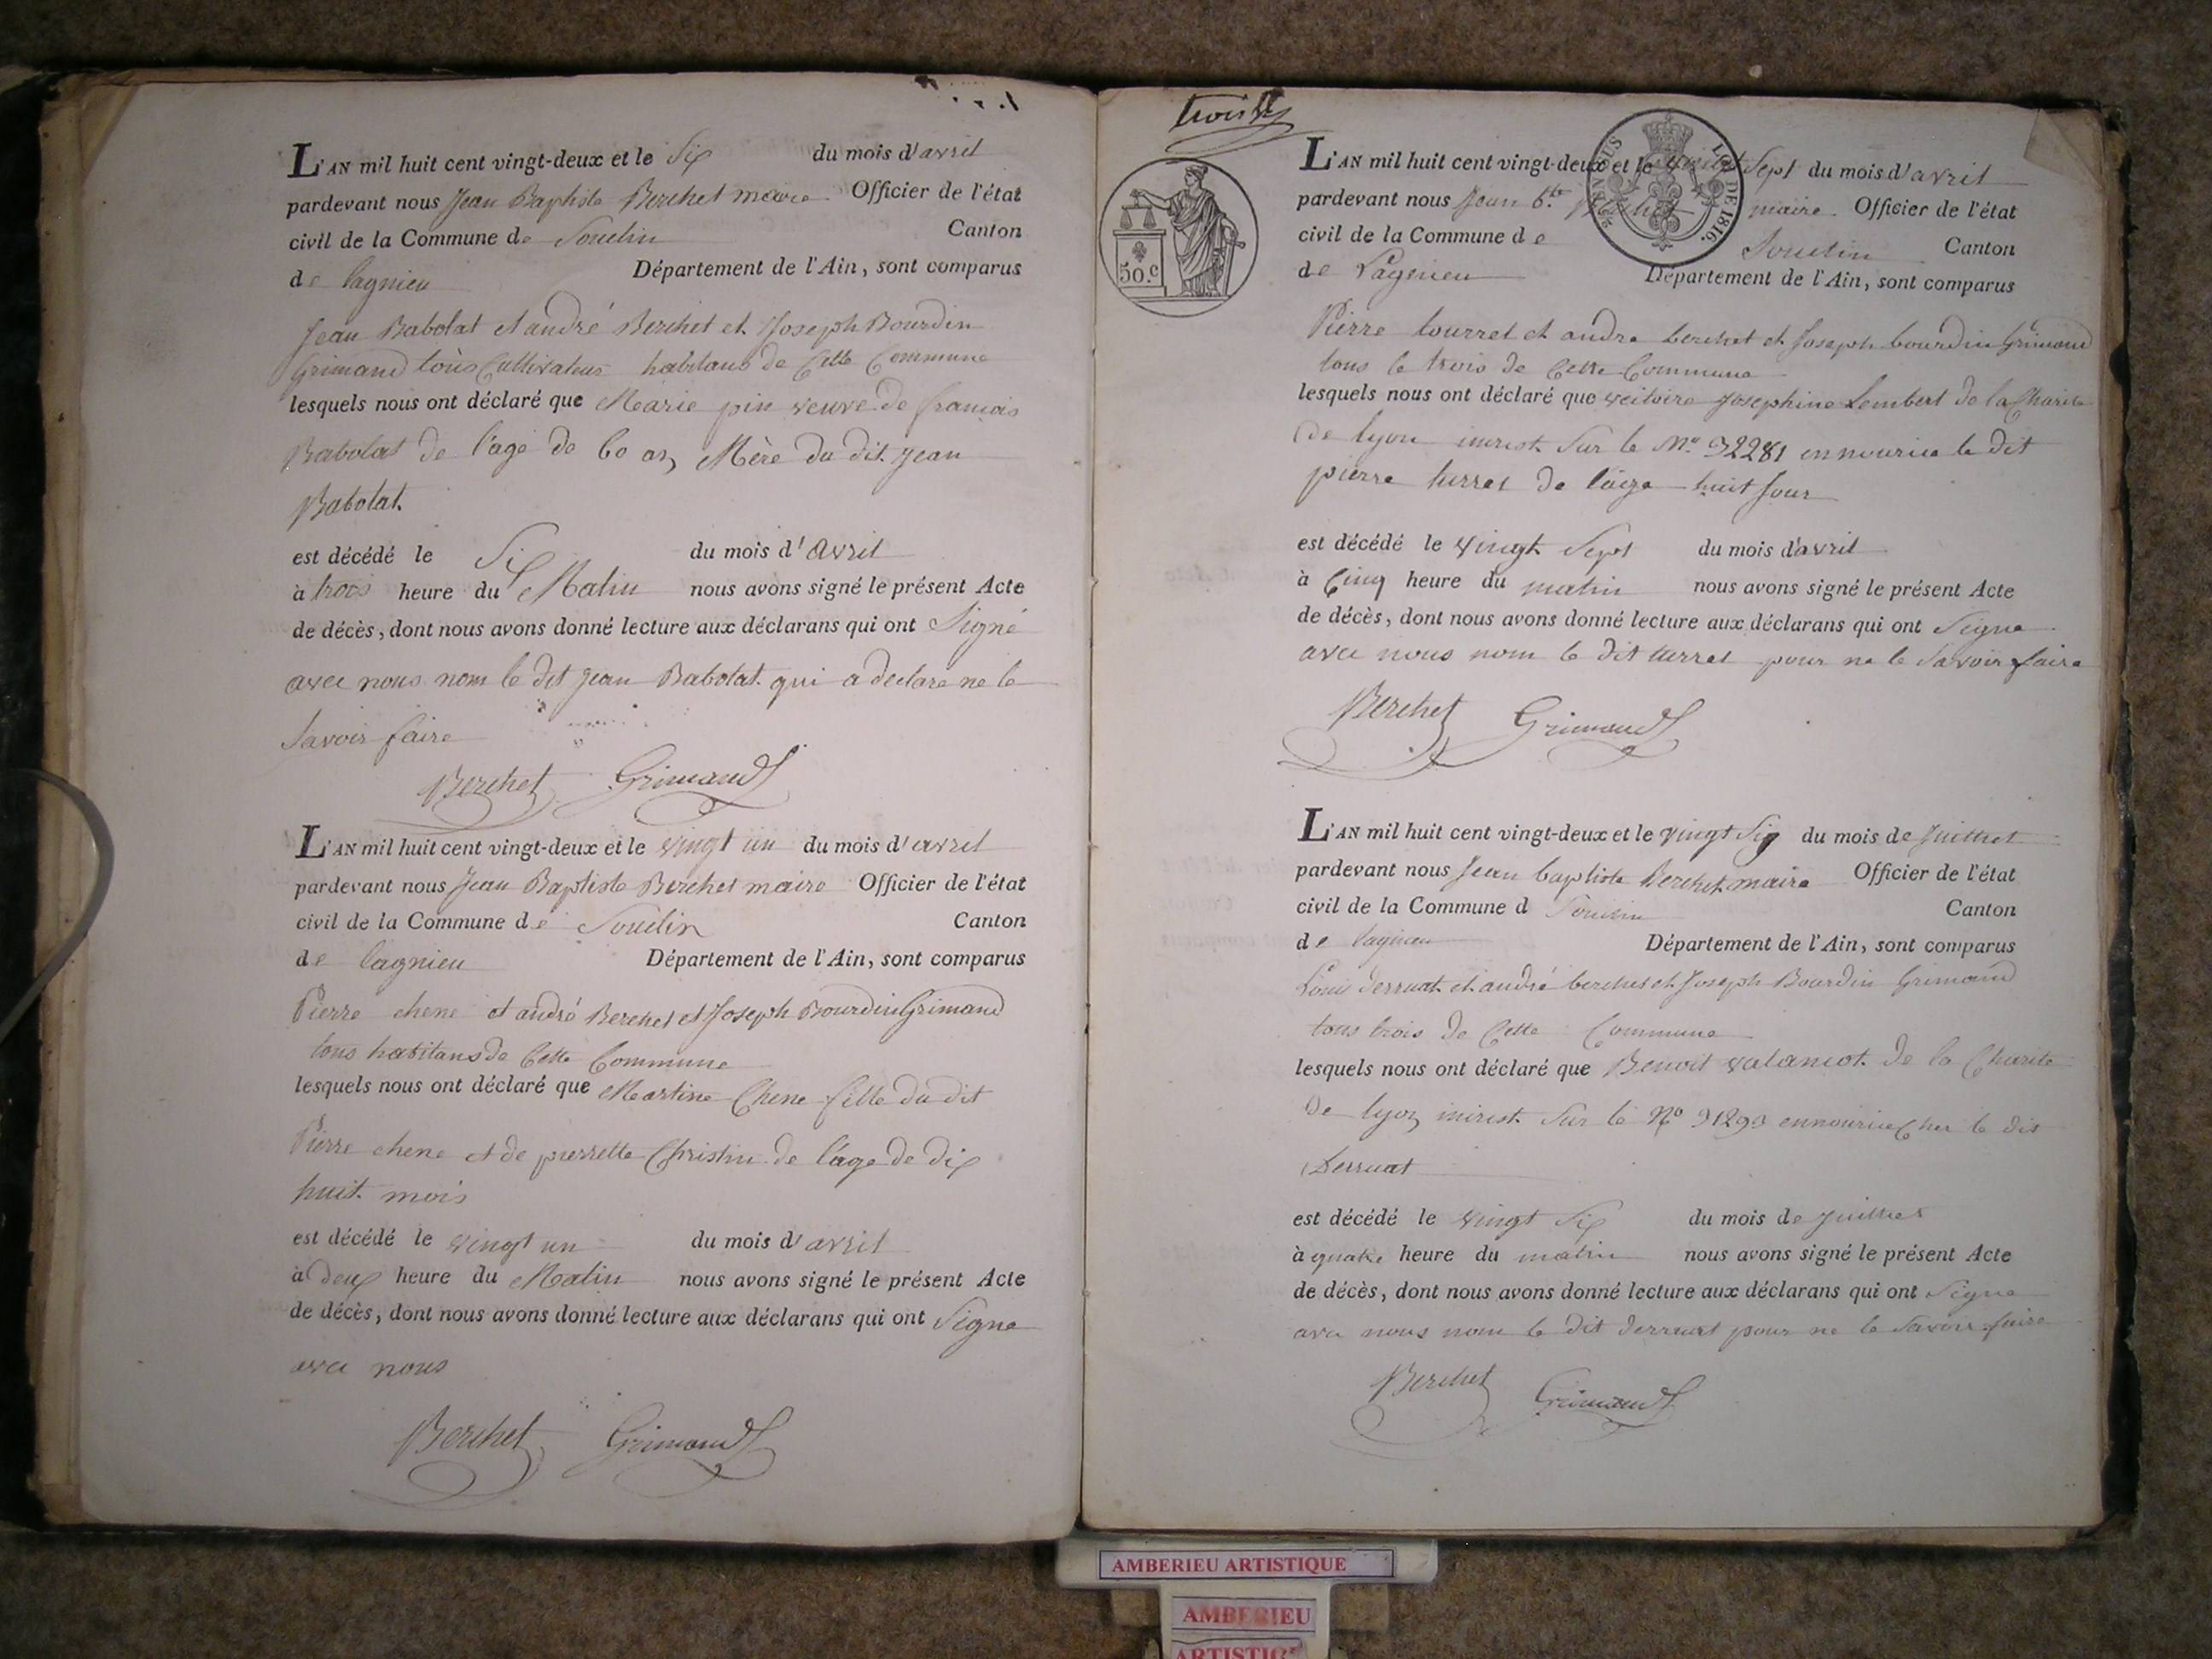 L'AN mil huit cent vingt-deux et le Six du mois d'avril
pardevant nous Jean Baptiste Berchet maire Officier de l'état
civil de la Commune de Souclin Canton
de lagnieu Département de l'Ain, sont comparus
Jean Babolat et andré Berchet et Joseph Bourdin
Grimand tous Cultivateurs habitans de Cette Commune
lesquels nous ont déclaré que Marie pin veuve de francois
Babolat de l'age de 60 ans Mère du dit Jean
Babolat
est décédé le Six du mois d'Avril
à trois heure du Matin nous avons signé le présent Acte
de décès, dont nous avons donné lecture aux déclarans qui ont Signé
avec nous nom le dit Jean Babolat qui a declare ne le
Savoir faire
Berchet Grimand
L'AN mil huit cent vingt-deux et le vingt un du mois d'avril
pardevant nous Jean Baptiste Berchet maire Officier de l'état
civil de la Commune de Souclin Canton
de lagnieu Département de l'Ain, sont comparus
Pierre chene et andré Berchet et Joseph Bourdin Grimand
tous habitans de Cette Commune
lesquels nous ont déclaré que Martine Chene fille du dit
Pierre chene et de pierrette Christin de l'age de dix
huit mois
est décédé le vingt un du mois d'avril
à deux heure du Matin nous avons signé le présent Acte
de décès, dont nous avons donné lecture aux déclarans qui ont Signe
avec nous
Berchet Grimand
trois
50.c
TIMBRE LOI DE 1816.
L'AN mil huit cent vingt-deux et le vingt Sept du mois d'avril
pardevant nous Jean b.te Berchet maire Officier de l'état
civil de la Commune de Souclin Canton
de Lagnieu Département de l'Ain, sont comparus
Pierre tourret et andre berchet et Joseph bourdin Grimand
tous le trois de Cette Commune
lesquels nous ont déclaré que victoire Josephine Lembert de la Charite
de lyon inscrit Sur le N.o 32281 en nourice le dit
pierre turret de l'aige huit Jour
est décédé le vingt Sept du mois d'avril
à Cinq heure du matin nous avons signé le présent Acte
de décès, dont nous avons donné lecture aux déclarans qui ont Signe
avec nous nom le dit turret pour ne le Savoir faire
Berchet Grimand
L'AN mil huit cent vingt-deux et le vingt Six du mois de Juillet
pardevant nous Jean baptiste Berchet maire Officier de l'état
civil de la Commune d Souclin Canton
de lagnieu Département de l'Ain, sont comparus
Louis derruat et andré berchet et Joseph Bourdin Grimand
tous trois de Cette Commune
lesquels nous ont déclaré que Benoit valancot de la Charite
de lyon inscrit Sur le No 31293 en nourice Cher le dit
Derruat
est décédé le vingt Six du mois de Juillet
à quatre heure du matin nous avons signé le présent Acte
de décès, dont nous avons donné lecture aux déclarans qui ont Signe
avec nous nom le dit derruat pour ne le Savoir faire
Berchet Grimand
AMBERIEU ARTISTIQUE
AMBERIEU
ARTISTIQUE